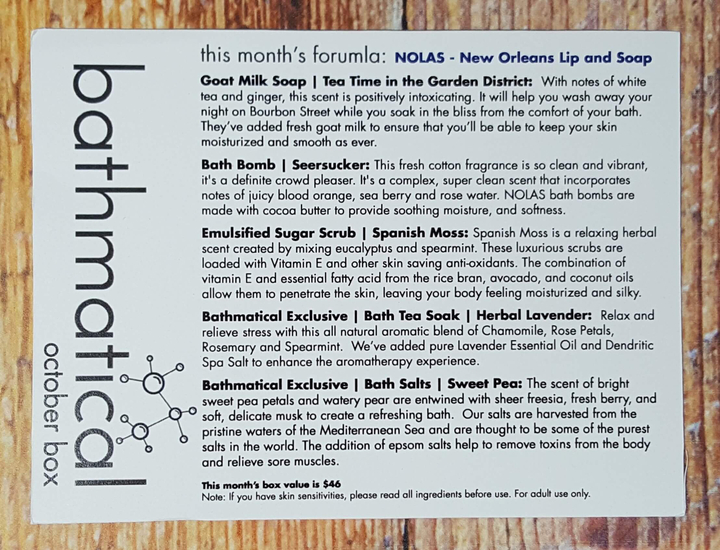 bathmatical
october box
this month's forumla: NOLAS - New Orleans Lip and Soap
Goat Milk Soap | Tea Time in the Garden District: With notes of white
tea and ginger, this scent is positively intoxicating. It will help you wash away your
night on Bourbon Street while you soak in the bliss from the comfort of your bath.
They've added fresh goat milk to ensure that you'll be able to keep your skin
moisturized and smooth as ever.
Bath Bomb | Seersucker: This fresh cotton fragrance is so clean and vibrant,
it's a definite crowd pleaser. It's a complex, super clean scent that incorporates
notes of juicy blood orange, sea berry and rose water. NOLAS bath bombs are
made with cocoa butter to provide soothing moisture, and softness.
Emulsified Sugar Scrub | Spanish Moss: Spanish Moss is a relaxing herbal
scent created by mixing eucalyptus and spearmint. These luxurious scrubs are
loaded with Vitamin E and other skin saving anti-oxidants. The combination of
vitamin E and essential fatty acid from the rice bran, avocado, and coconut oils
allow them to penetrate the skin, leaving your body feeling moisturized and silky.
Bathmatical Exclusive | Bath Tea Soak | Herbal Lavender: Relax and
relieve stress with this all natural aromatic blend of Chamomile, Rose Petals,
Rosemary and Spearmint. We've added pure Lavender Essential Oil and Dendritic
Spa Salt to enhance the aromatherapy experience.
Bathmatical Exclusive | Bath Salts | Sweet Pea: The scent of bright
sweet pea petals and watery pear are entwined with sheer freesia, fresh berry, and
soft, delicate musk to create a refreshing bath. Our salts are harvested from the
pristine waters of the Mediterranean Sea and are thought to be some of the purest
salts in the world. The addition of epsom salts help to remove toxins from the body
and relieve sore muscles.
This month's box value is $46
Note: If you have skin sensitivities, please read all ingredients before use. For adult use only.